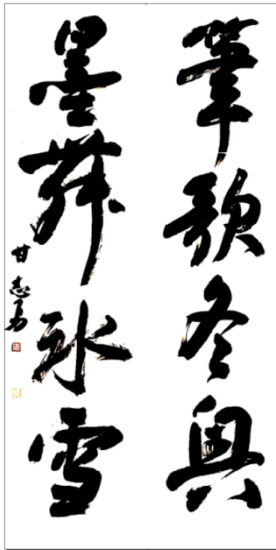 筆歌冬奥
墨舞冰雪
甘志勇